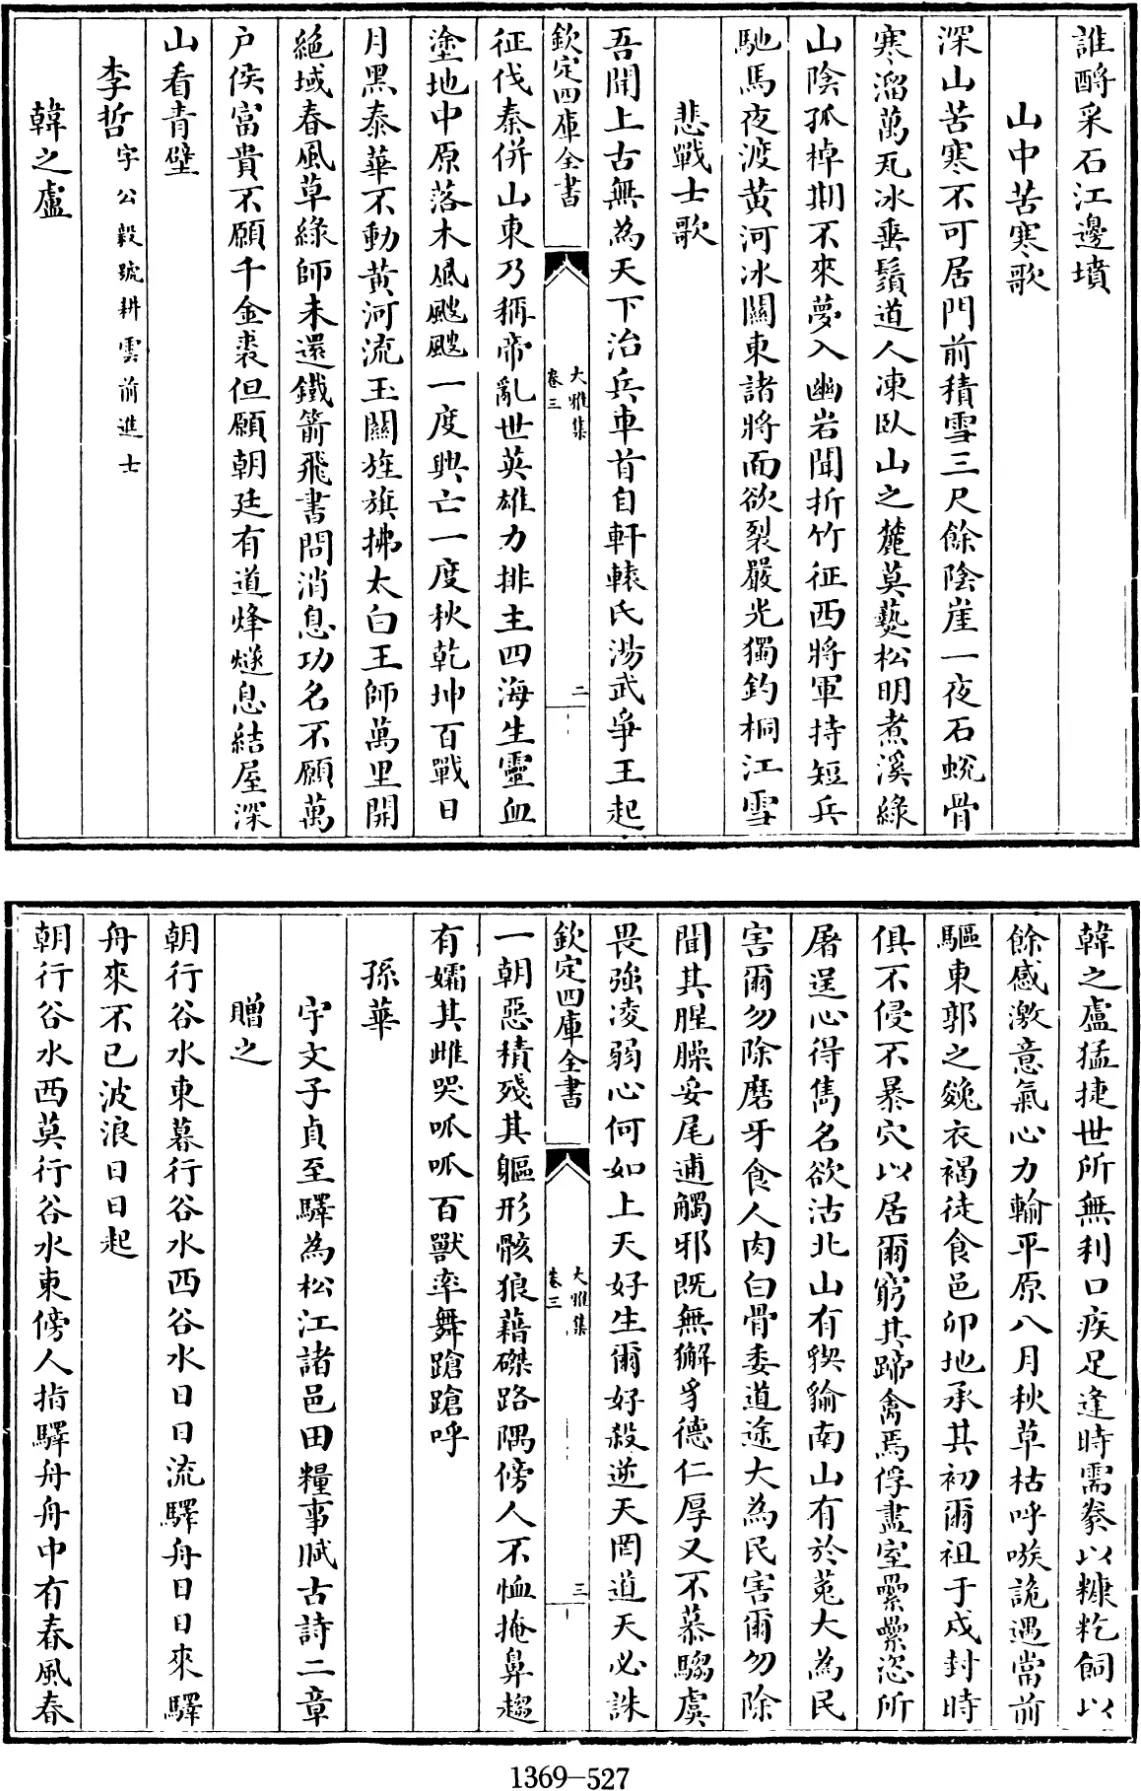 誰酹采石江邊墳
山中苦寒歌
深山苦寒不可居門前積雪三尺餘陰崖一夜石蛻骨
寒溜萬瓦冰垂鬚道人凍臥山之麓莫爇松明煮溪綠
山陰孤棹期不來夢入幽岩聞折竹征西將軍持短兵
馳馬夜渡黄河冰關東諸將面欲裂嚴光獨釣桐江雪
悲戰士歌
吾聞上古無為天下治兵車首自軒轅氏湯武爭王起
欽定四庫全書
大雅集
卷三
二
征伐秦併山東乃稱帝亂世英雄力排主四海生靈血
塗地中原落木風颼颼一度興亡一度秋乾坤百戰日
月黑泰華不動黄河流玉關旌旗拂太白王師萬里開
絶域春風草綠師未還鐵箭飛書問消息功名不願萬
户侯富貴不願千金裘但願朝廷有道烽燧息結屋深
山看青壁
李哲字公毅號耕雲前進士
韓之盧
韓之盧猛捷世所無利口疾足逢時需豢以糠籺飼以
餘感激意氣心力輸平原八月秋草枯呼嗾詭遇當前
驅東郭之㕙衣褐徒食邑卯地承其初爾祖于戍封時
俱不侵不暴穴以居爾窮其蹄禽焉俘盡室纍纍恣所
屠逞心得雋名欲沽北山有猰㺄南山有於菟大為民
害爾勿除磨牙食人肉白骨委道途大為民害爾勿除
聞其腥臊妥尾逋觸邪既無獬豸德仁厚又不慕騶虞
畏強凌弱心何如上天好生爾好殺逆天罔道天必誅
欽定四庫全書
大雅集
卷三
三
一朝惡積殘其軀形骸狼藉磔路隅傍人不恤掩鼻趨
有孀其雌哭呱呱百獸率舞蹌蹌呼
孫華
宇文子貞至驛為松江諸邑田糧事賦古詩二章
贈之
朝行谷水東暮行谷水西谷水日日流驛舟日日來驛
舟來不已波浪日日起
朝行谷水西莫行谷水東傍人指驛舟舟中有春風春
1369—527